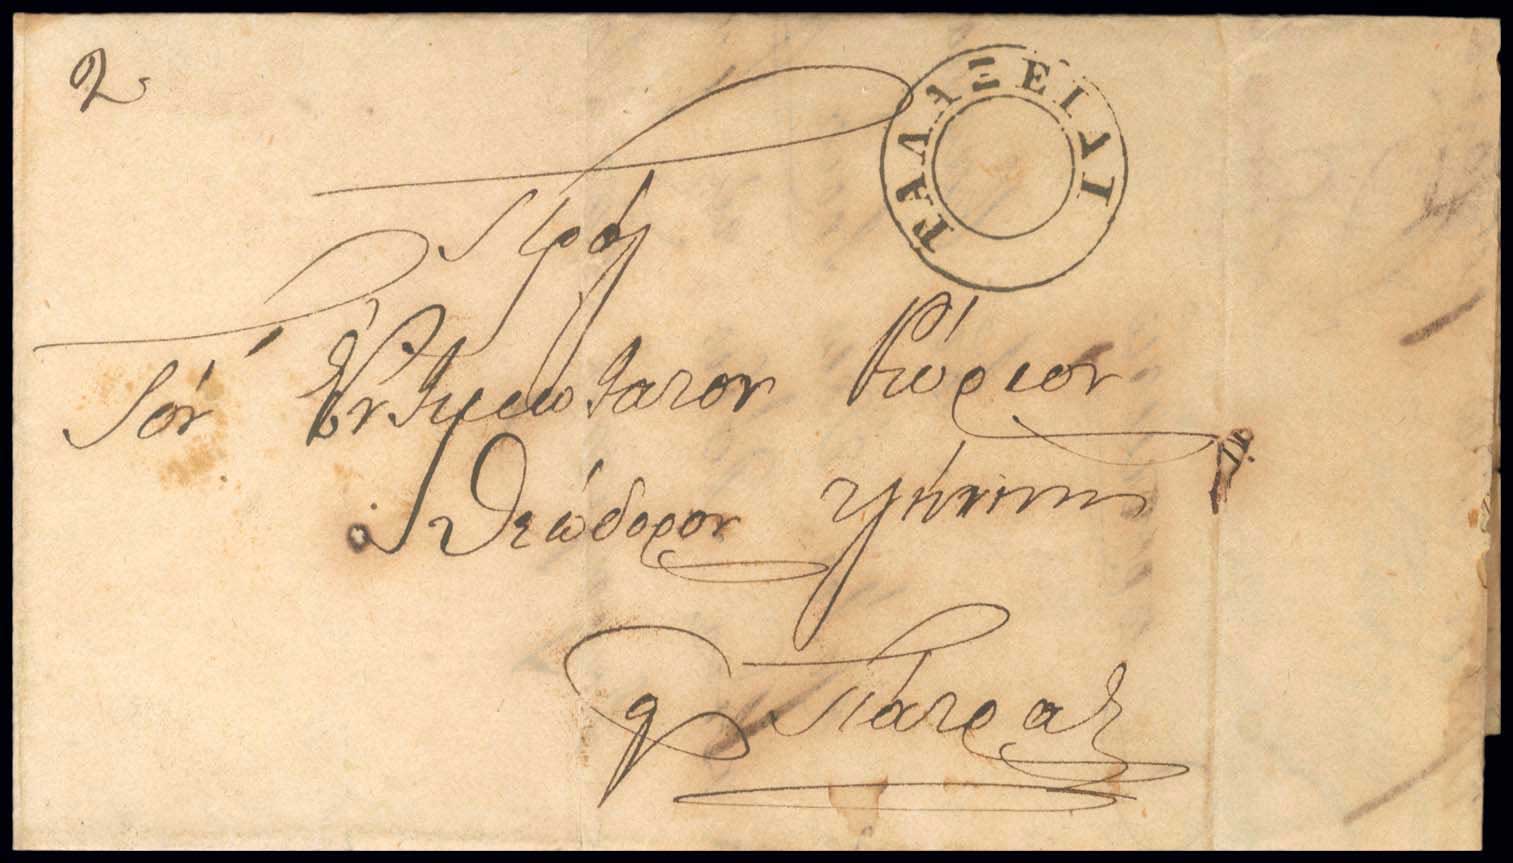 2
ΓΑΛΑΞΕΙΔΙ
Πρός
Τόν Ἐντιμώτατον Κύριον
Θεόδορον
Πάτρας